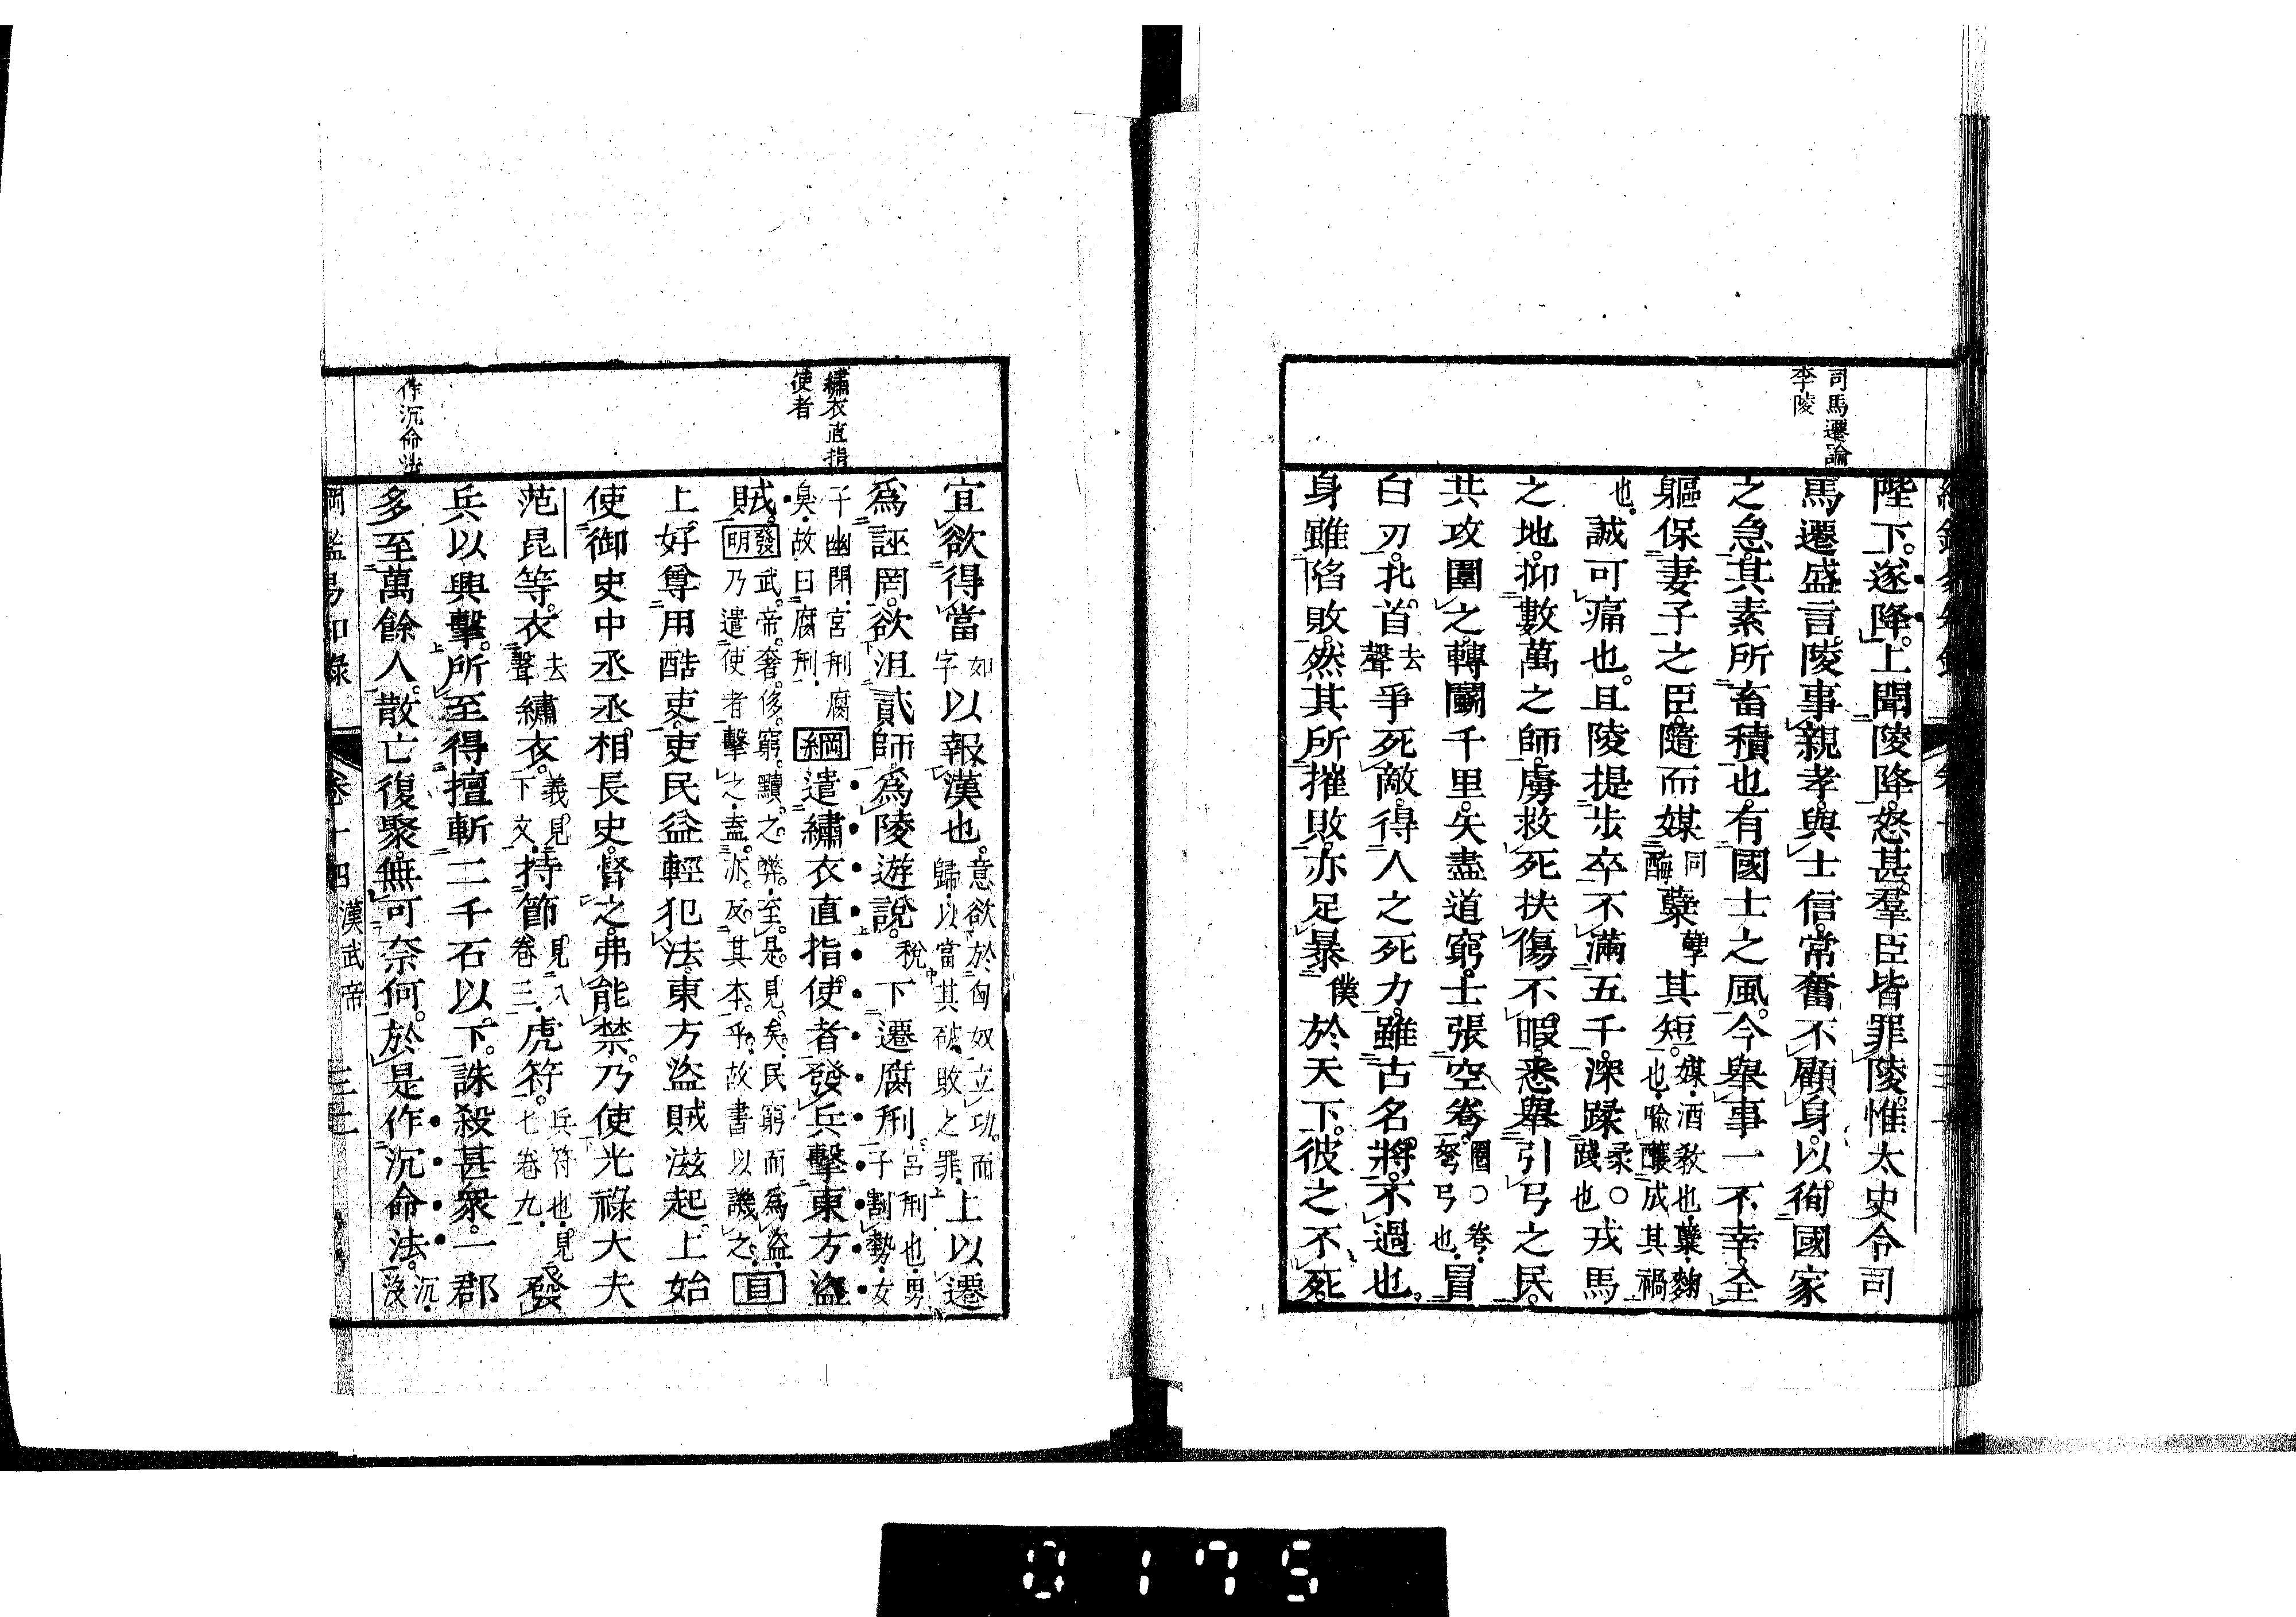 司馬遷論
李陵
陛下。遂降。上聞陵降。怒甚。羣臣皆罪陵。惟太史令司
馬遷盛言。陵事親孝。與士信。常奮不顧身。以徇國家
之急。其素所畜積也。有國士之風。今舉事一不幸。全
軀保妻子之臣。隨而媒同酶糵孽其短。媒。酒教也。糵。麴也。喻釀成其禍
也。誠可痛也。且陵提步卒不滿五千。深蹂柔○踐也戎馬
之地。抑數萬之師。虜救死扶傷不暇。悉舉引弓之民。
共攻圍之。轉鬬千里。矢盡道窮。士張空弮。圈○弮。弩弓也。冒
白刃。北首去聲爭死敵。得人之死力。雖古名將。不過也。
身雖陷敗。然其所摧敗。亦足暴僕於天下。彼之不死。
繡衣直指
使者
作沉命法
宜欲得當如字以報漢也。意欲於匈奴立功。而歸。以當其破敗之罪。上以遷
爲誣罔。欲沮貳師。爲陵遊說。稅下遷腐刑。宮刑也。男子割勢。女
子幽閉。宮刑腐臭。故曰腐刑。綱遣繡衣直指使者。發兵擊東方盜
賊。發明武帝。奢侈。窮黷之弊。至是見矣。民窮而爲盜。乃遣使者擊之。盍亦反其本乎。故書以譏之。目
上好尊用酷吏。吏民益輕犯法。東方盜賊滋起。上始
使御史中丞丞相長史。督之。弗能禁。乃使光祿大夫
范昆等。衣去聲繡衣。義見下文。持節見八卷三。虎符。兵符也。見七卷九。發
兵以興擊。所至得擅斬二千石以下。誅殺甚衆。一郡
多至萬餘人。散亡復聚。無可奈何。於是作沉命法。沉。沒
綱鑑易知錄 卷十四 漢武帝 三二
0175